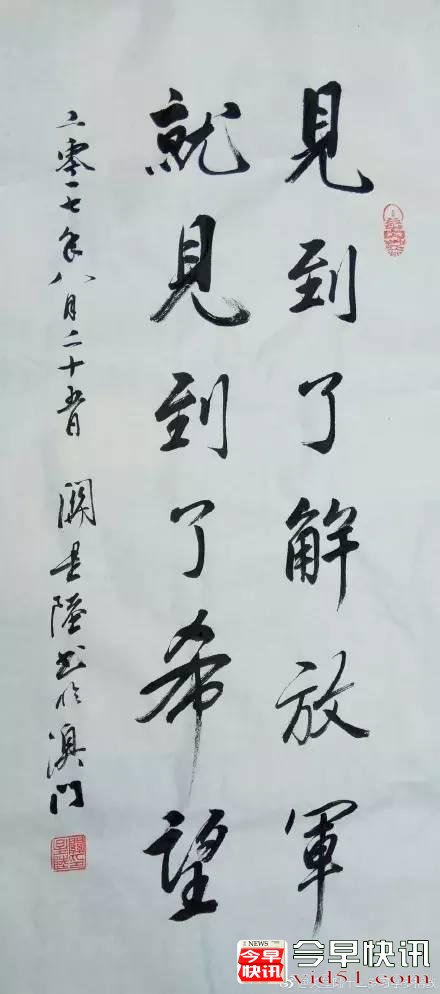 見到了解放軍
就見到了希望
二零一七年八月二十五日 關星隆书於澳門
NEWS
今早快讯
今早快讯
vid51.com